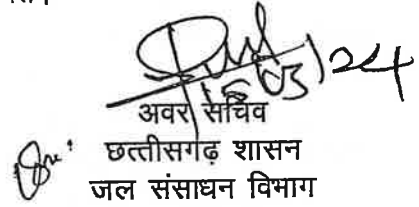 15/03/24
अवर सचिव
छत्तीसगढ़ शासन
जल संसाधन विभाग